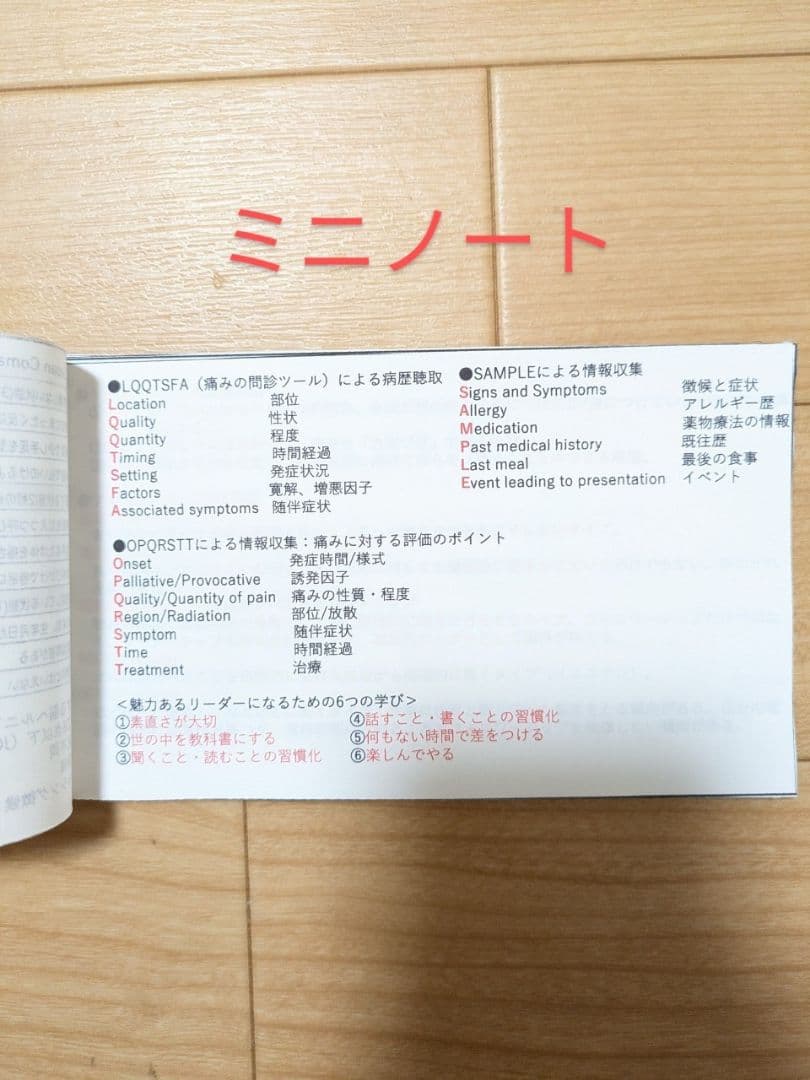 ミニノート
●LQQTSFA（痛みの問診ツール）による病歴聴取
Location 部位
Quality 性状
Quantity 程度
Timing 時間経過
Setting 発症状況
Factors 寛解、増悪因子
Associated symptoms 随伴症状
●SAMPLEによる情報収集
Signs and Symptoms 徴候と症状
Allergy アレルギー歴
Medication 薬物療法の情報
Past medical history 既往歴
Last meal 最後の食事
Event leading to presentation イベント
●OPQRSTTによる情報収集：痛みに対する評価のポイント
Onset 発症時間/様式
Palliative/Provocative 誘発因子
Quality/Quantity of pain 痛みの性質・程度
Region/Radiation 部位/放散
Symptom 随伴症状
Time 時間経過
Treatment 治療
＜魅力あるリーダーになるための6つの学び＞
①素直さが大切 ④話すこと・書くことの習慣化
②世の中を教科書にする ⑤何もない時間で差をつける
③聞くこと・読むことの習慣化 ⑥楽しんでやる